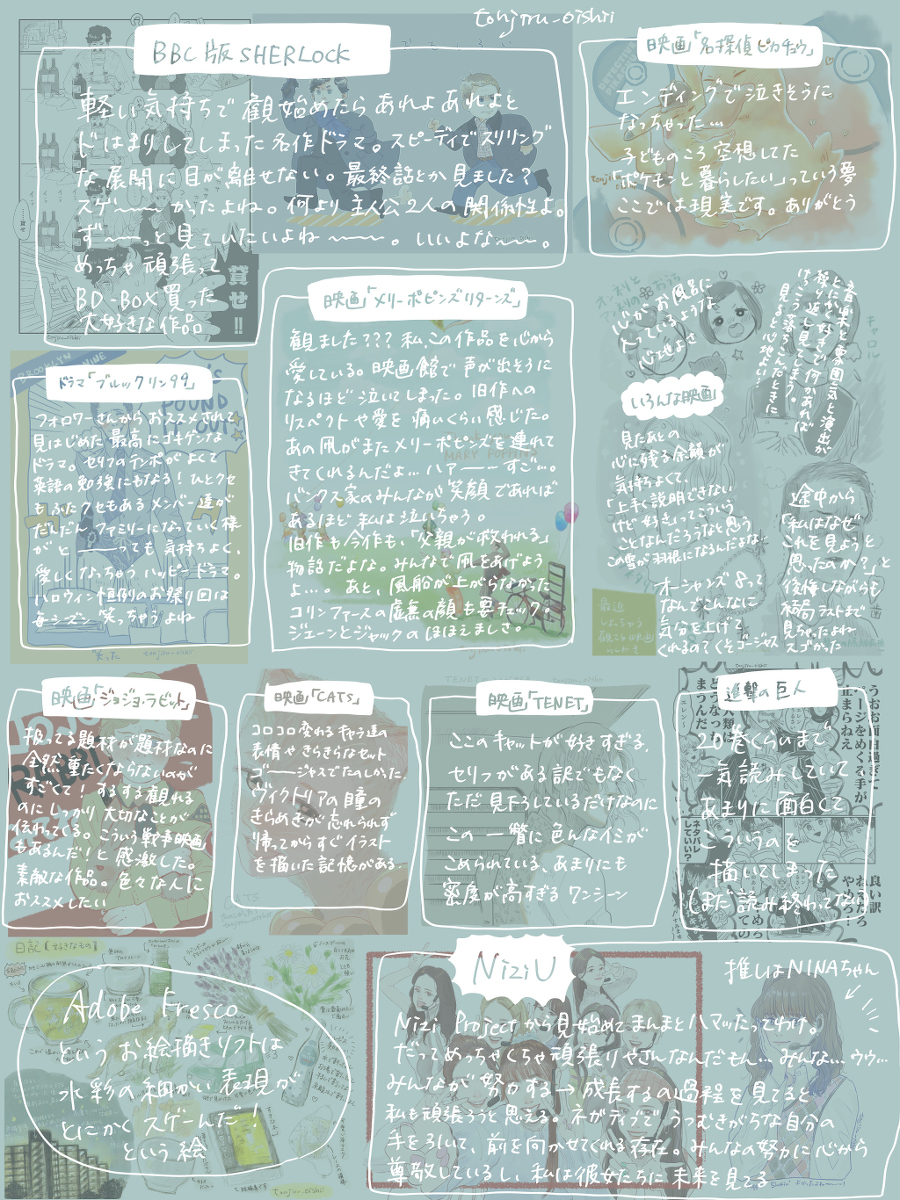 tonjiru_oishii
BBC版 SHERLOCK
軽い気持ちで観始めたらあれよあれよと
ドはまりしてしまった名作ドラマ。スピーディでスリリング
な展開に目が離せない。最終話とか見ました？
スゲ〜〜〜かったよね。何より主人公2人の関係性よ。
ず〜〜っと見ていたいよね〜〜〜。いいよな〜〜。
めっちゃ頑張って
BD-BOX買った
大好きな作品
貸せ!!
映画「名探偵ピカチュウ」
エンディングで泣きそうに
なっちゃった…
子どものころ空想してた
「ポケモンと暮らしたい」っていう夢
ここでは現実です。ありがとう
ドラマ「ブルックリン99」
フォロワーさんからおススメされて
見はじめた最高にゴキゲンな
ドラマ。セリフのテンポがよくて
英語の勉強にもなる！ひとクセ
もふたクセもあるメンバー達が
だんだんファミリーになっていく様
がと──っても気持ちよく、
愛しくなっちゃうハッピードラマ。
ハロウィン恒例のお祭り回は
毎シーズン笑っちゃうよね
映画「メリーポピンズリターンズ」
観ました？？？私、この作品を心から
愛している。映画館で声が出そうに
なるほど泣いてしまった。旧作への
リスペクトや愛を痛いくらい感じた。
あの凧がまたメリーポピンズを連れて
きてくれるんだよ…ハァ──すご…。
バンクス家のみんなが笑顔であれば
あるほど私は泣いちゃう。
旧作も今作も、「父親が救われる」
物語だよな。みんなで凧をあげよう
よ…。あと、風船が上がらなかった
コリンファースの虚無の顔も要チェック。
ジェーンとジャックのほほえましさ。
心がお風呂に
入っているような
心地よさ
音楽と雰囲気と演出が
とにかく好きで何かあれば
繰り返し見てしまう。
けっこう落ちこんだときに
見ると心地よい
キャロル
いろんな映画
見たあとの
心に残る余韻が
気持ちよくて、
「上手く説明できない
けど好き」ってこういう
ことなんだろうなと思う
この雪が羽根になるんだよな…
オーシャンズ8って
なんでこんなに
気分を上げて
くれるのてくそゴージャス
途中から
「私はなぜ
これを見ようと
思ったのか？」と
後悔しながらも
結局ラストまで
見ちゃったよね
スゴかった
映画「ジョジョ・ラビット」
扱ってる題材が題材なのに
全然重たくならないのが
すごくて！するする観れる
のにしっかり大切なことが
伝わってくる。こういう戦争映画
もあるんだ！と感激した。
素敵な作品。色々な人に
おススメしたい
映画「CATS」
コロコロ変わるキャラ達の
表情やきらきらなセット
ゴージャスでたのしかった
ヴィクトリアの瞳の
きらめきが忘れられず
帰ってからすぐイラスト
を描いた記憶がある
映画「TENET」
ここのキャットが好きすぎる。
セリフがある訳でもなく
ただ見下ろしているだけなのに
この一瞥に色んなイミが
こめられている、あまりにも
密度が高すぎるワンシーン
進撃の巨人
20巻くらいまで
一気読みしていて、
あまりに面白くて
こういうのを
描いてしまった
(まだ読み終わってない)
うおお面白過ぎて
ページをめくる手が
止まらねえ
日記【好きなもの】
Adobe Fresco
というお絵描きソフトは
水彩の細かい表現が
とにかくスゲーんだ！
という絵
NiziU
推しはNINAちゃん
Nizi Projectから見始めてまんまとハマッたってわけ。
だってめっちゃくちゃ頑張りやさんなんだもん…みんな…ウゥ…
みんなが努力する→成長するの過程を見てると
私も頑張ろうと思える。ネガティブでうつむきがちな自分の
手を引いて、前を向かせてくれる存在。みんなの努力に心から
尊敬しているし、私は彼女たちに未来を見てる